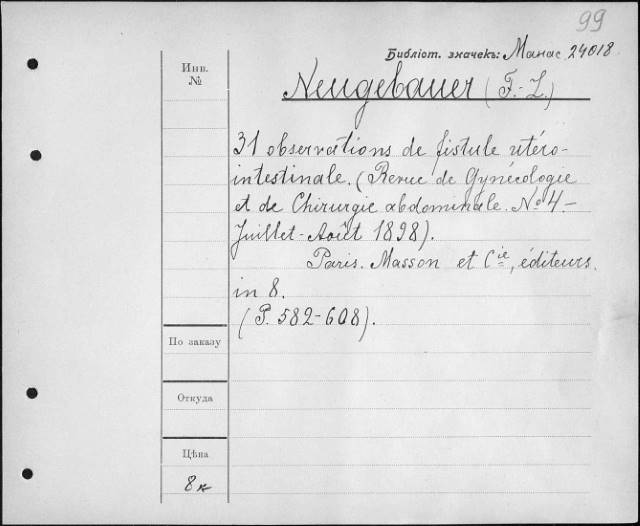 99
Библіот. значекъ: Манас 24018.
Инв.
№
Neugebauer (F.-L.)
31 observations de fistule utéro-
intestinale. (Revue de Gynécologie
et de Chirurgie abdominale. № 4 –
Juillet-Août 1898).
Paris. Masson et Cie, éditeurs.
in 8.
(P. 582-608).
По заказу
Откуда
Цѣна
8 к